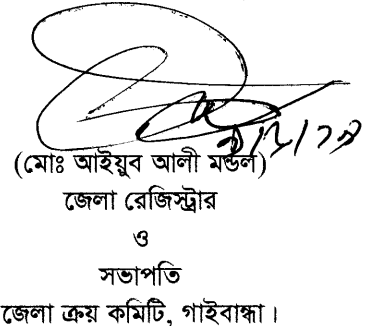 (মোঃ আইয়ুব আলী মন্ডল)
জেলা রেজিস্ট্রার
ও
সভাপতি
জেলা ক্রয় কমিটি, গাইবান্ধা।